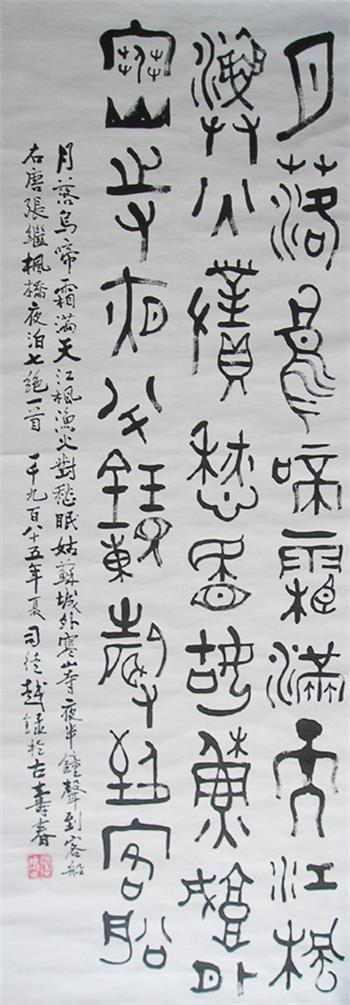 月落烏啼霜滿天江楓
漁火對愁眠姑蘇城外
寒山寺夜半鐘聲到客船
月落烏啼霜滿天江楓漁火對愁眠姑蘇城外寒山寺夜半鐘聲到客船
右唐張繼楓橋夜泊七絕一首 一千九百八十五年夏司徒越錄於古壽春